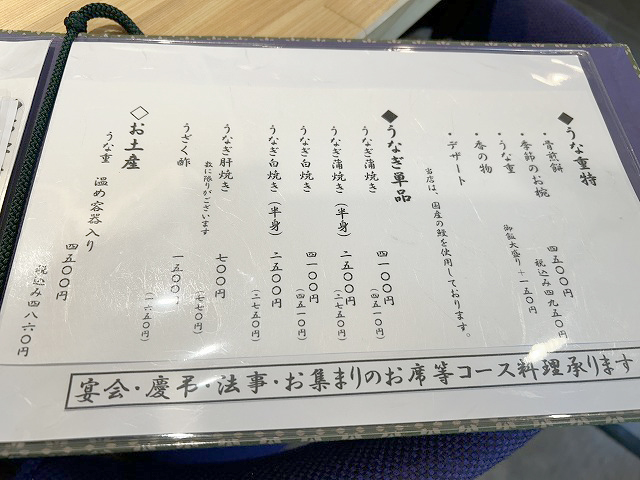 ◆うな重特
・骨煎餅
・季節のお椀
・うな重
・香の物
・デザート
四五〇〇円
税込み四九五〇円
御飯大盛り+一五〇円
当店は、国産の鰻を使用しております。
◆うなぎ単品
うなぎ蒲焼き 四一〇〇円
(四五一〇円)
うなぎ蒲焼き(半身) 二五〇〇円
(二七五〇円)
うなぎ白焼き 四一〇〇円
(四五一〇円)
うなぎ白焼き(半身) 二五〇〇円
(二七五〇円)
うなぎ肝焼き 七〇〇円
数に限りがございます (七七〇円)
うざく酢 一五〇〇円
(一六五〇円)
◇お土産
うな重 温め容器入り 四五〇〇円
税込み四八六〇円
宴会・慶弔・法事・お集まりのお席等コース料理承ります